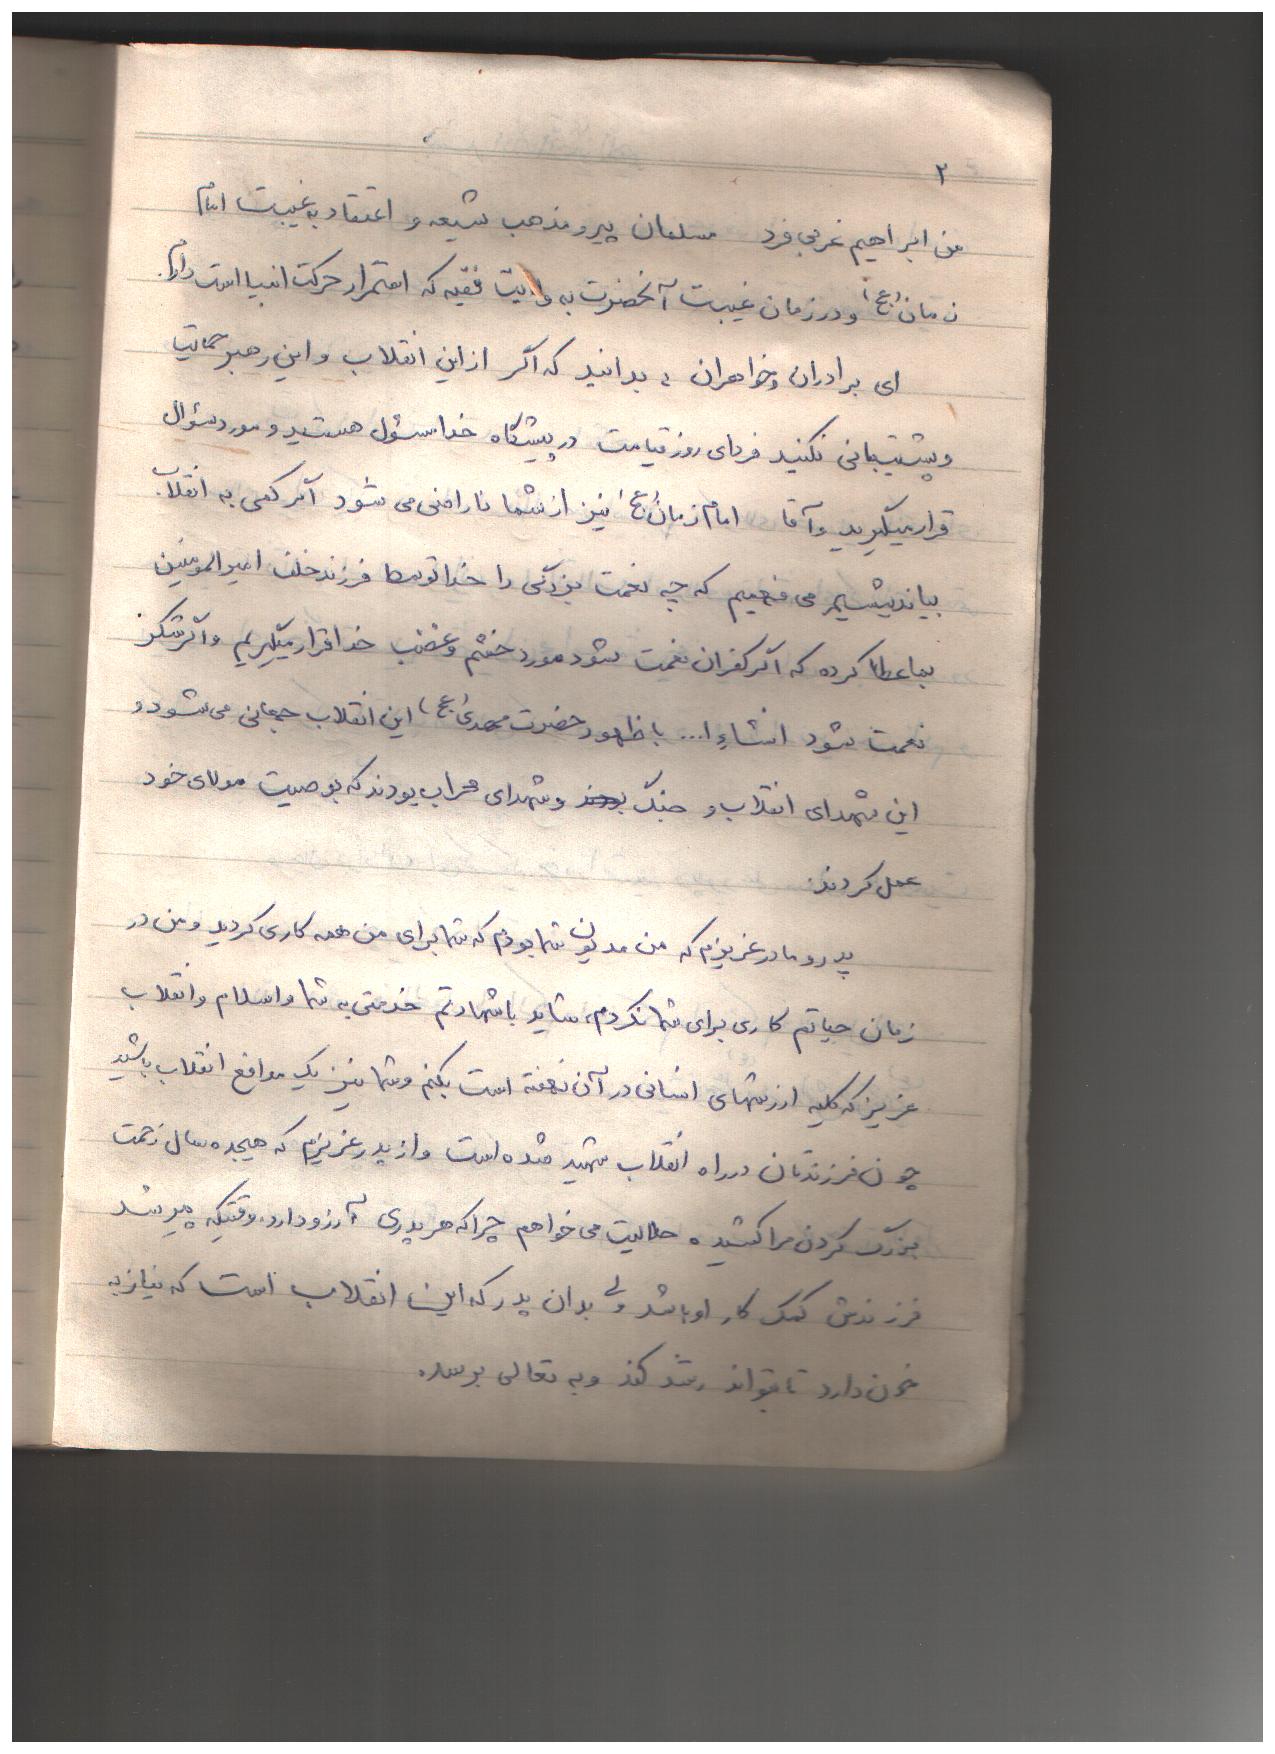 ۲
من ابراهیم غربی فرد مسلمان پیرو مذهب شیعه و اعتقاد به غیبت امام
زمان (عج) و در زمان غیبت آنحضرت به ولایت فقیه که استمرار حرکت انبیا است دارم.
ای برادران و خواهران ، بدانید که اگر از این انقلاب و این رهبر حمایت
و پشتیبانی نکنید فردای روز قیامت در پیشگاه خدا مسئول هستید و مورد سئوال
قرار میگیرید و آقا امام زمان (عج) نیز از شما ناراضی می شود اگر کمی به انقلاب
بیاندیشیم می فهمیم که چه نعمت بزرگی را خدا توسط فرزند خلف امیرالمومنین
بما عطا کرده که اگر کفران نعمت شود مورد خشم و غضب خدا قرار میگیریم و اگر شکر
نعمت شود انشاء ا... با ظهور حضرت مهدی (عج) این انقلاب جهانی می شود و
این شهدای انقلاب و جنگ و شهدای محراب بودند که بوصیت مولای خود
عمل کردند.
پدر و مادر عزیزم که من مدیون شما بودم که شما برای من همه کاری کردید و من در
زمان حیاتم کاری برای شما نکردم، شاید با شهادتم خدمتی به شما و اسلام و انقلاب
عزیز که کلیه ارزشهای انسانی در آن نهفته است بکنم و شما نیز یک مدافع انقلاب باشید
چون فرزندتان در راه انقلاب شهید شده است و از پدر عزیزم که هیجده سال زحمت
بزرگ کردن مرا کشیده حلالیت می خواهم چرا که هر پدری آرزو دارد، وقتیکه پیر شد
فرزندش کمک کار او باشد ولی بدان پدر که این انقلاب است که نیاز به
خون دارد تا بتواند رشد کند و به تعالی برسد.